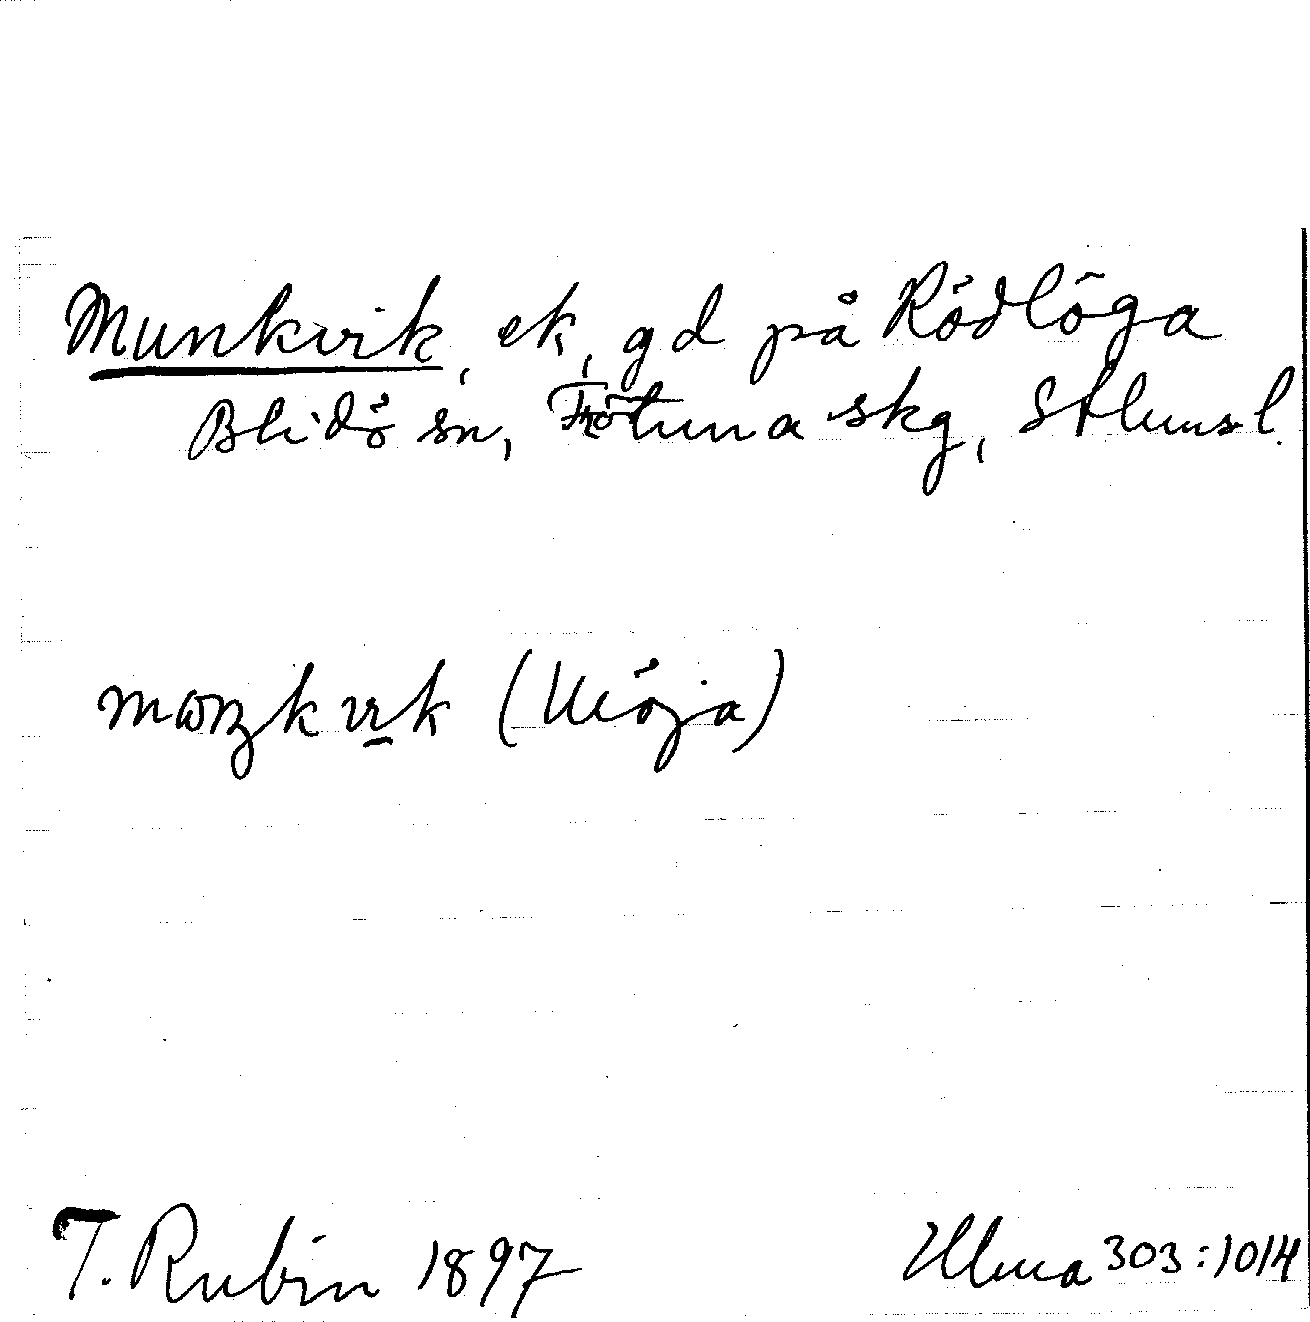 Munkvik, ek, gd på Rödlöga
Blidö sn, Frötuna skg, Sthlms l.
(Möja)
T. Rubin 1897
Ulma 303:1014